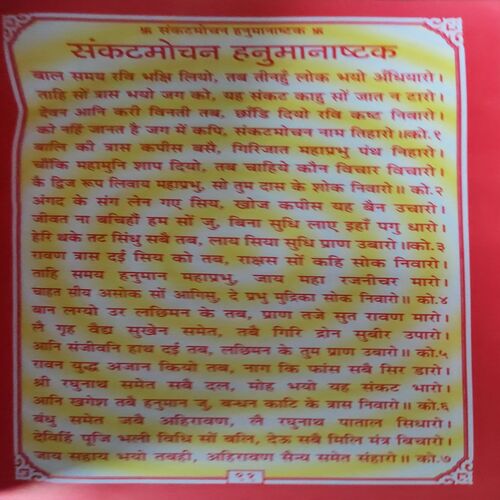 卐 संकटमोचन हनुमानाष्टक 卐
संकटमोचन हनुमानाष्टक
बाल समय रवि भक्षि लियो, तब तीनहुँ लोक भयो अँधियारो।
ताहि सों त्रास भयो जग को, यह संकट काहु सों जात न टारो।
देवन आनि करी विनती तब, छाँडि दियो रवि कष्ट निवारो।
को नहिं जानत है जग में कपि, संकटमोचन नाम तिहारो॥को.१
बालि को त्रास कपीस बसै, गिरिजात महाप्रभु पंथ निहारो।
चौंकि महामुनि शाप दियो, तब चाहिये कौन विचार विचारो।
कै द्विज रूप लिवाय महाप्रभु, सो तुम दास के शोक निवारो॥ को.२
अंगद के संग लेन गए सिय, खोज कपीस यह बैन उचारो।
जीवत ना बचिहौं हम सों जु, बिना सुधि लाए इहाँ पगु धारो।
हेरि थके तट सिंधु सबै तब, लाय सिया सुधि प्राण उबारो॥को.३
रावण त्रास दई सिय को तब, राक्षस सों कहि सोक निवारो।
ताहि समय हनुमान महाप्रभु, जाय महा रजनीचर मारो।
चाहत सीय असोक सों आगिसु, दे प्रभु मुद्रिका सोक निवारो॥ को.४
बान लग्यो उर लछिमन के तब, प्राण तजे सुत रावण मारो।
लै गृह वैद्य सुखेन समेत, तबै गिरि द्रोन सुवीर उपारो।
आनि संजीवनि हाथ दई तब, लछिमन के तुम प्राण उबारो॥ को.५
रावन युद्ध अजान कियो तब, नाग कि फांस सबै सिर डारो।
श्री रघुनाथ समेत सबै दल, मोह भयो यह संकट भारो।
आनि खगेश तबै हनुमान जु, बन्धन काटि के त्रास निवारो॥ को.६
बंधु समेत जबै अहिरावण, लै रघुनाथ पाताल सिधारो।
देविहिं पूजि भली विधि सों बलि, देऊ सबै मिलि मंत्र बिचारो।
जाय सहाय भयो तबही, अहिरावण सैन्य समेत संहारो॥ को.७